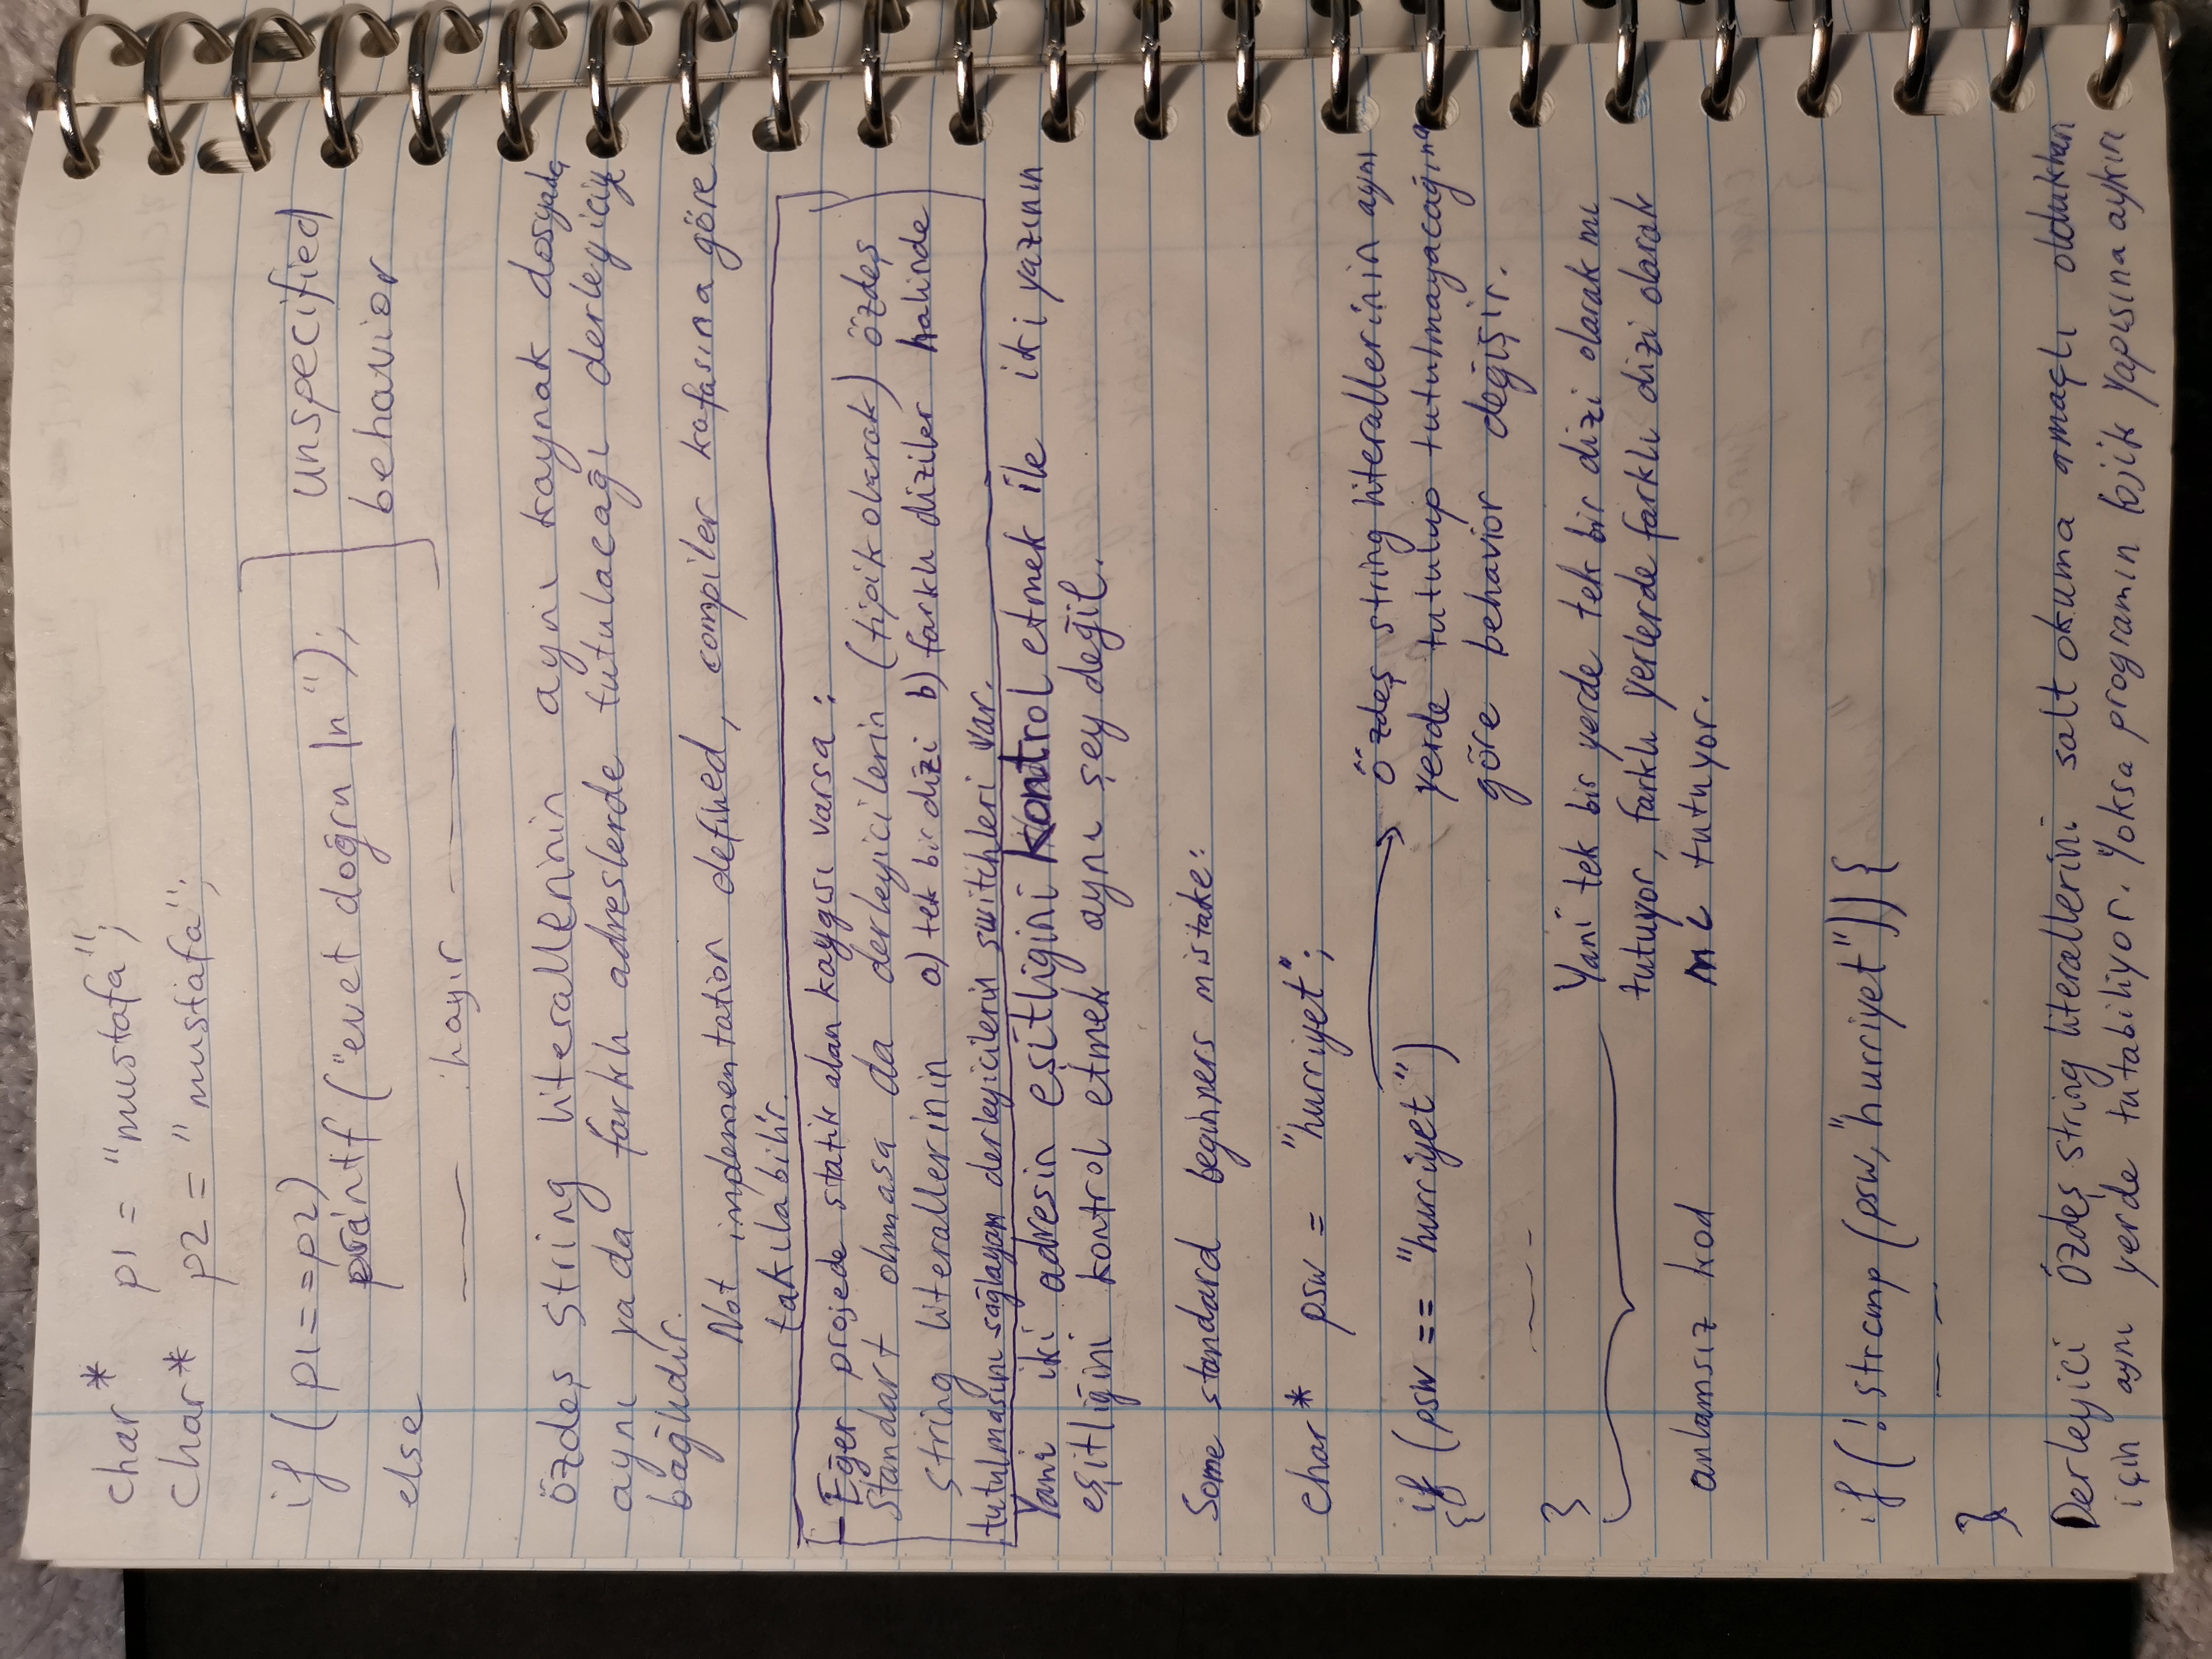 char* p1 = "mustafa";
char* p2 = "mustafa";
if (p1==p2)
printf ("evet doğru \n");
else
hayır
unspecified
behavior
özdeş string literallerinin aynı kaynak dosyada
aynı yada farklı adreslerde tutulacağı derleyiciye
bağlıdır.
Not implementation defined, compiler kafasına göre
takılabilir.
- Eğer projede statik alan kaygısı varsa :
Standart olmasa da derleyicilerin (tipik olarak) özdeş
string literallerinin a) tek bir dizi b) farklı diziler halinde
tutulmasını sağlayan derleyicilerin switchleri var.
Yani iki adresin eşitliğini kontrol etmek ile iki yazının
eşitliğini kontrol etmek aynı şey değil.
Some standard beginners mistake:
char* psw = "hurriyet";
if (psw == "hurriyet")
{
}
anlamsız kod
özdeş string literallerinin aynı
yerde tutulup tutulmayacağına
göre behavior değişir.
Yani tek bir yerde tek bir dizi olarak mı
tutuyor, farklı yerlerde farklı dizi olarak
mı tutuyor.
if (! strcmp (psw, "hurriyet")) {
}
Derleyici özdeş string literallerini salt okuma amaçlı oldukları
için aynı yerde tutabiliyor. Yoksa programın lojik yapısına aykırı